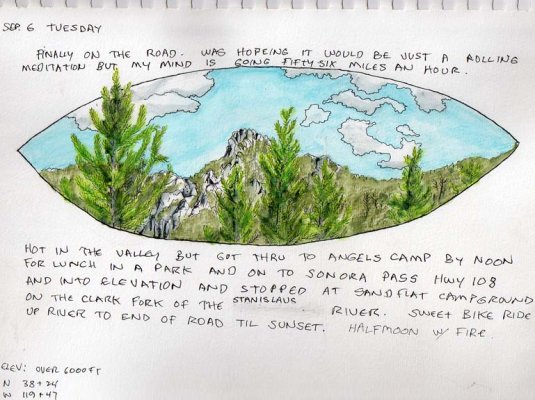 SEP. 6 TUESDAY
FINALLY ON THE ROAD. WAS HOPEING IT WOULD BE JUST A ROLLING
MEDITATION BUT MY MIND IS GOING FIFTY SIX MILES AN HOUR.
HOT IN THE VALLEY BUT GOT THRU TO ANGELS CAMP BY NOON
FOR LUNCH IN A PARK AND ON TO SONORA PASS HWY 108
AND INTO ELEVATION AND STOPPED AT SANDFLAT CAMPGROUND
ON THE CLARK FORK OF THE STANISLAUS RIVER. SWEET BIKE RIDE
UP RIVER TO END OF ROAD TIL SUNSET. HALFMOON W/ FIRE.
ELEV: OVER 6000 FT
N 38+24
W 119+47